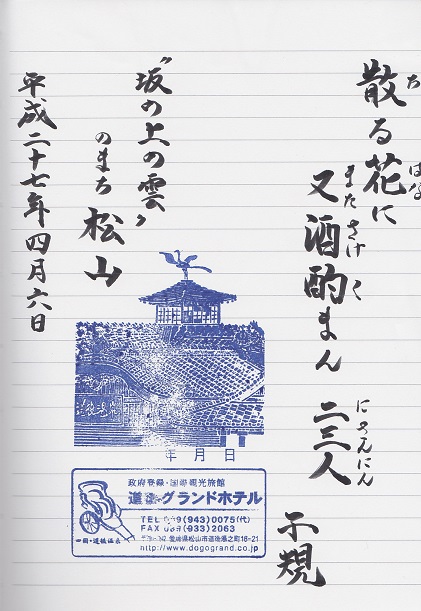 散る花に
ち
はな
又酒酌まん
また
さけ
く
二三人
にさんにん
子規
"坂の上の雲"
のまち 松山
平成二十七年四月六日
年 月 日
政府登録・国際観光旅館
道後グランドホテル
TEL 089(943)0075(代)
FAX 089(933)2063
愛媛県松山市道後湯之町16-21
http://www.dogogrand.co.jp